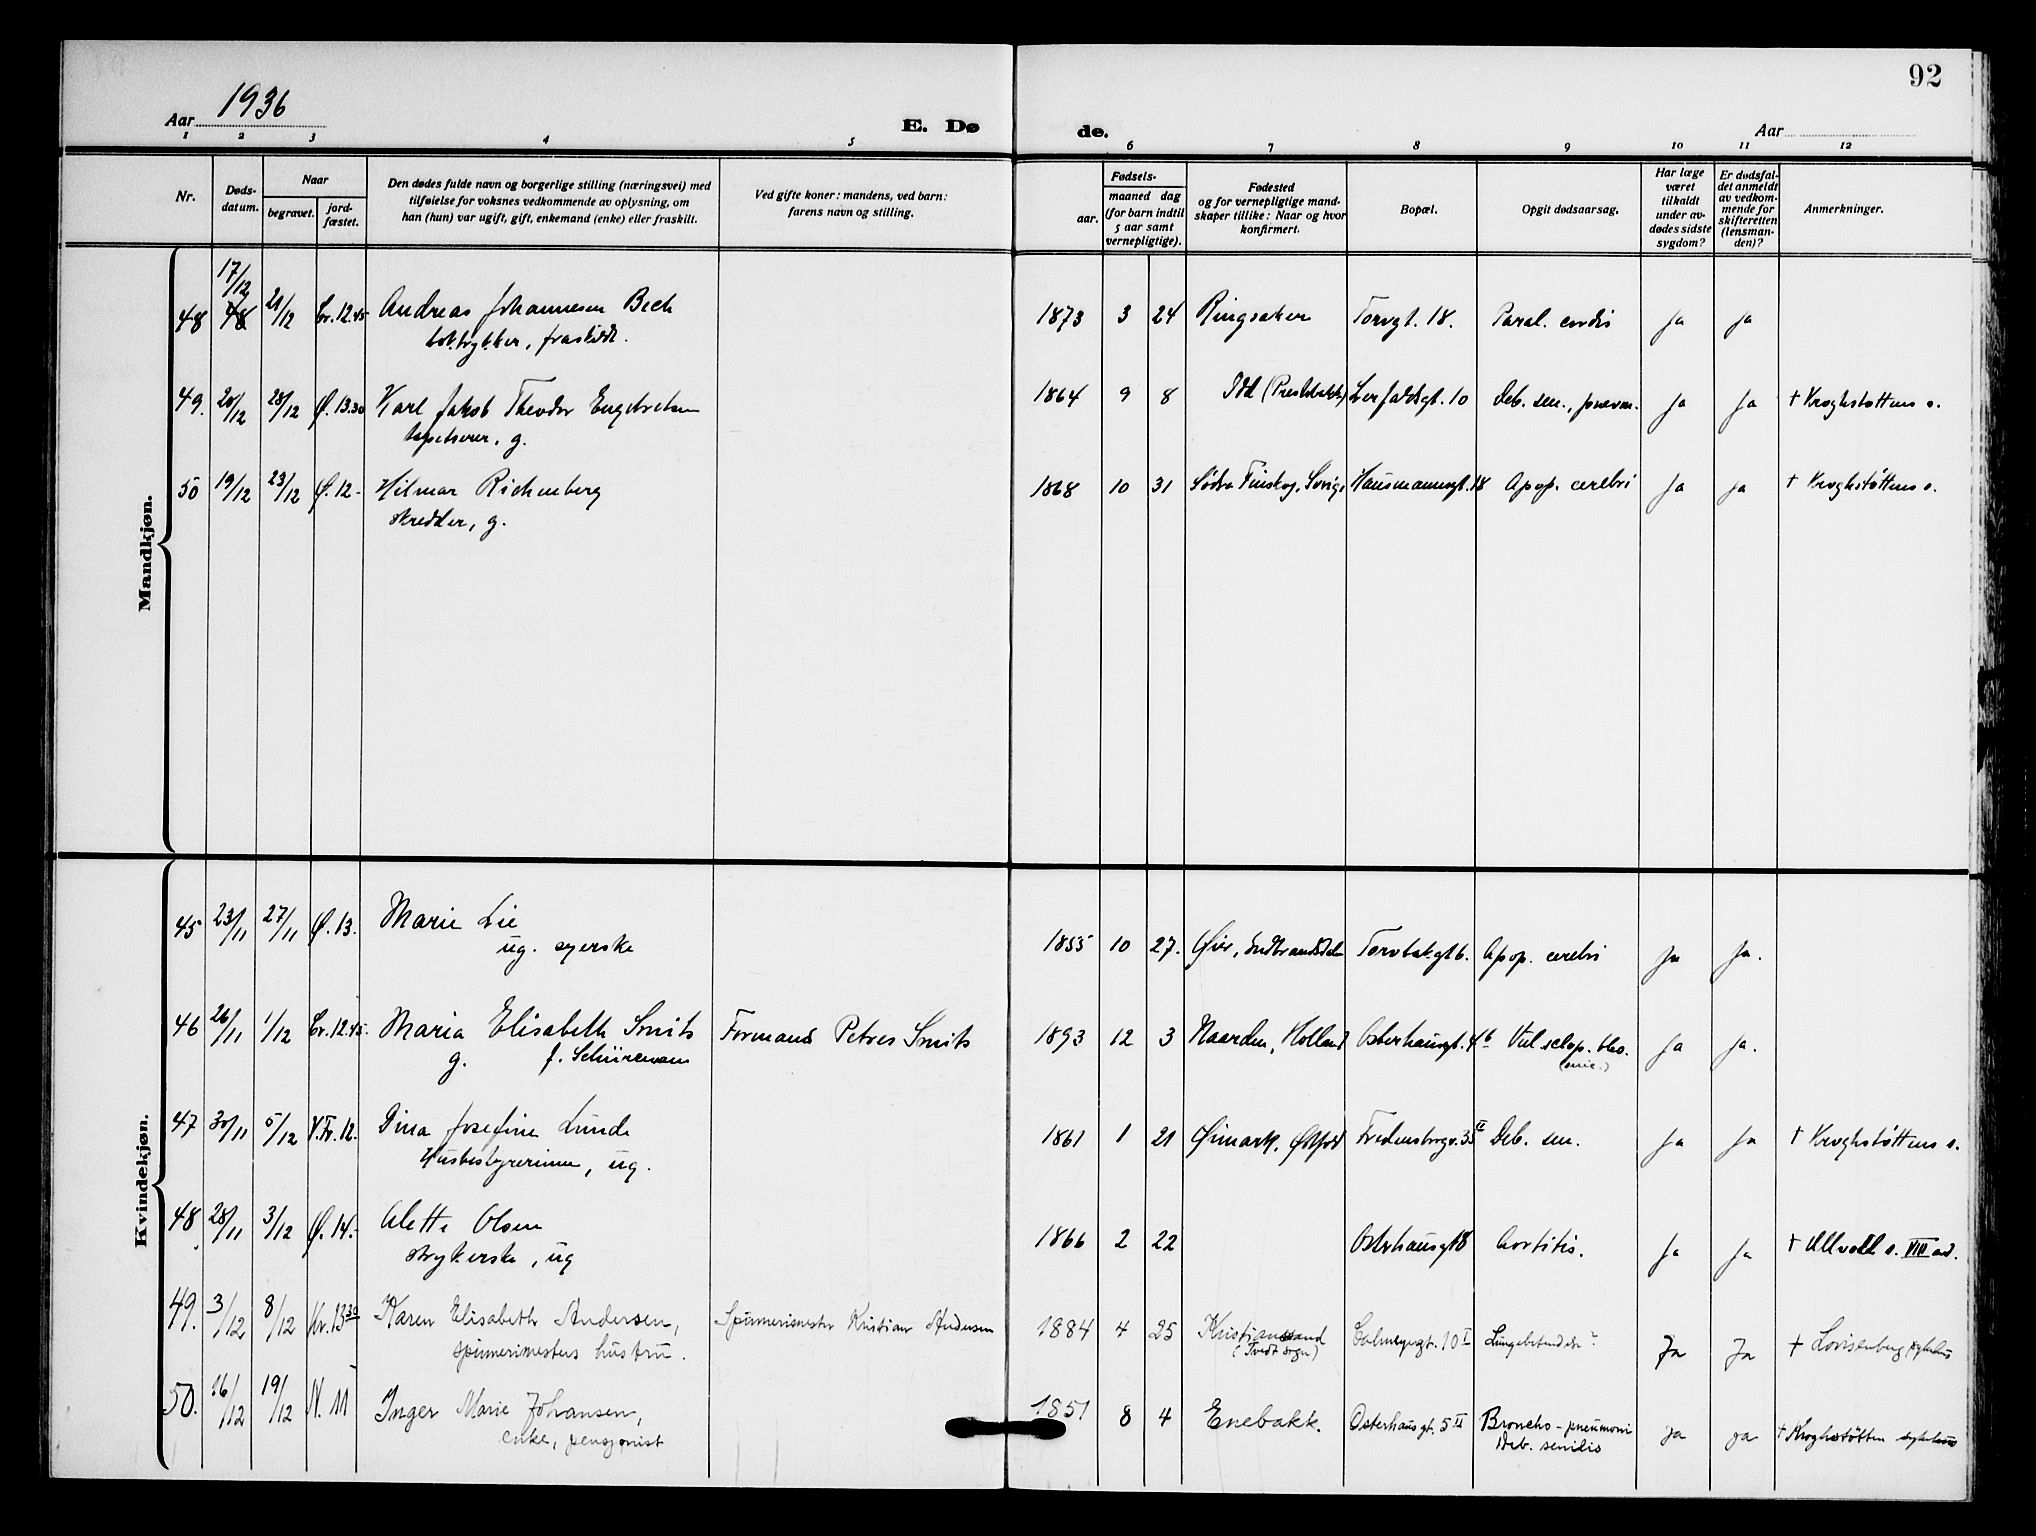 92
Aar 1936
E. Døde.
Aar
1 2 3 4 5 6 7 8 9 10 11 12
Nr.
Dødsdatum.
Naar
begravet.
jordfæstet.
Den dødes fulde navn og borgerlige stilling (næringsvei) med
tilføielse for voksnes vedkommende av oplysning, om
han (hun) var ugift, gift, enkemand (enke) eller fraskilt.
Ved gifte koner: mandens, ved barn:
farens navn og stilling.
Fødsels-
aar.
maaned dag
(for barn indtil
5 aar samt
vernepligtige).
Fødested
og for vernepligtige mand-
skaper tillike: Naar og hvor
konfirmert.
Bopæl.
Opgit dødsaarsag.
Har læge
været
tilkaldt
under av-
dødes sidste
sygdom?
Er dødsfal-
det anmeldt
av vedkom-
mende for
skifteretten
(lensman-
den)?
Anmerkninger.
Mandkjøn.
48 17/12 21/12 Kr. 12.45 Andreas Johannesen Bech 1873 3 24 Ringsaker Torvgt. 18. Paral. cordis Ja Ja
boktrykker, fraskilt.
49. 20/12 28/12 Ø. 13.30 Karl Jakob Theodor Engebretsen 1864 9 8 Idd (Prestebakke) 10 Deb. sen., pneum. Ja Ja † Kroghstøttens s.
tapetserer, g.
50 19/12 23/12 Ø. 12- Hilmar Richenberg 1868 10 31 Södra Finskog, Sverige Hausmannsgt. 18 Apop. cerebri Ja Ja † Kroghstøttens s.
skredder, g.
Kvindekjøn.
45 23/11 27/11 Ø. 13. Marie Lie 1855 10 27. Øier, Gudbrandsdalen Torvbakgt 6. Apop. cerebri Ja Ja.
ug. syerske
46 26/11 1/12 Kr. 12.45. Maria Elisabeth Smits Formand Petrus Smits 1893 12 3 Naarden, Holland Osterhausgt. 4b Ja Ja.
g. f. Schüreman
47 30/11 5/12 V.Fr. 12. Dina Josefine Lunde 1861 1 21 Øimark, Østfold Fredensborgv. 35 II Deb. sen. Ja Ja † Kroghstøttens s.
Husbestyrerinne, ug.
48 28/11 3/12 Ø. 14.- Alette Olsen 1866 2 22 Osterhausgt 8 Aortitis. Ja Ja † Ullevål s. VIII avd.
strykerske, ug
49. 3/12 8/12 Kr. 13 30 Karen Elisabeth Andersen, Spinnerimester Kristian Andersen 1884 4 25 Kristiansand Calmeyersgt. 10 I Lungebetendelse? Ja Ja † Lovisenberg sykehus
spinnerimesters hustru. (Tveit sogn)
50. 16/12 19/12 N. 11 Inger Marie Johansen, 1851 8 4 Enebakk. Osterhausgt. 5 II Broncho-pneumoni Ja Ja † Kroghstøtten sykehus
enke, pensjonist Deb. senilis